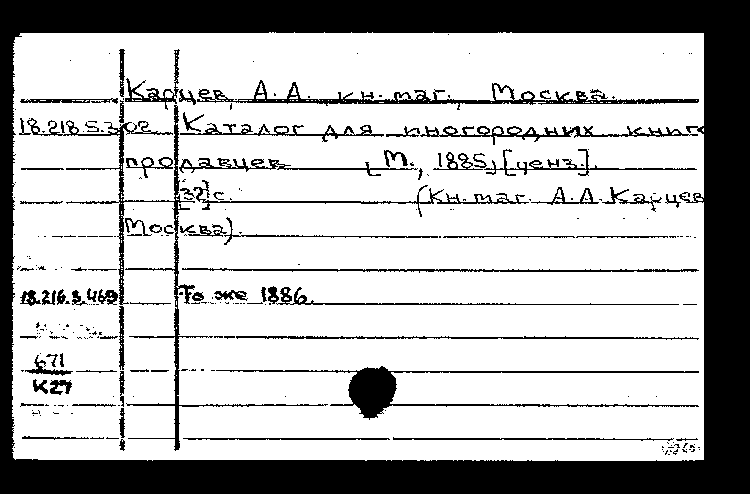 Карцев, А.А. кн. маг., Москва.
18.218.5.302 Каталог для иногородних книго
продавцев [М., 1885] [ценз].
[32]с. (Кн. маг. А.А. Карцев
Москва).
18.216.3.469 То же 1886.
671
К27